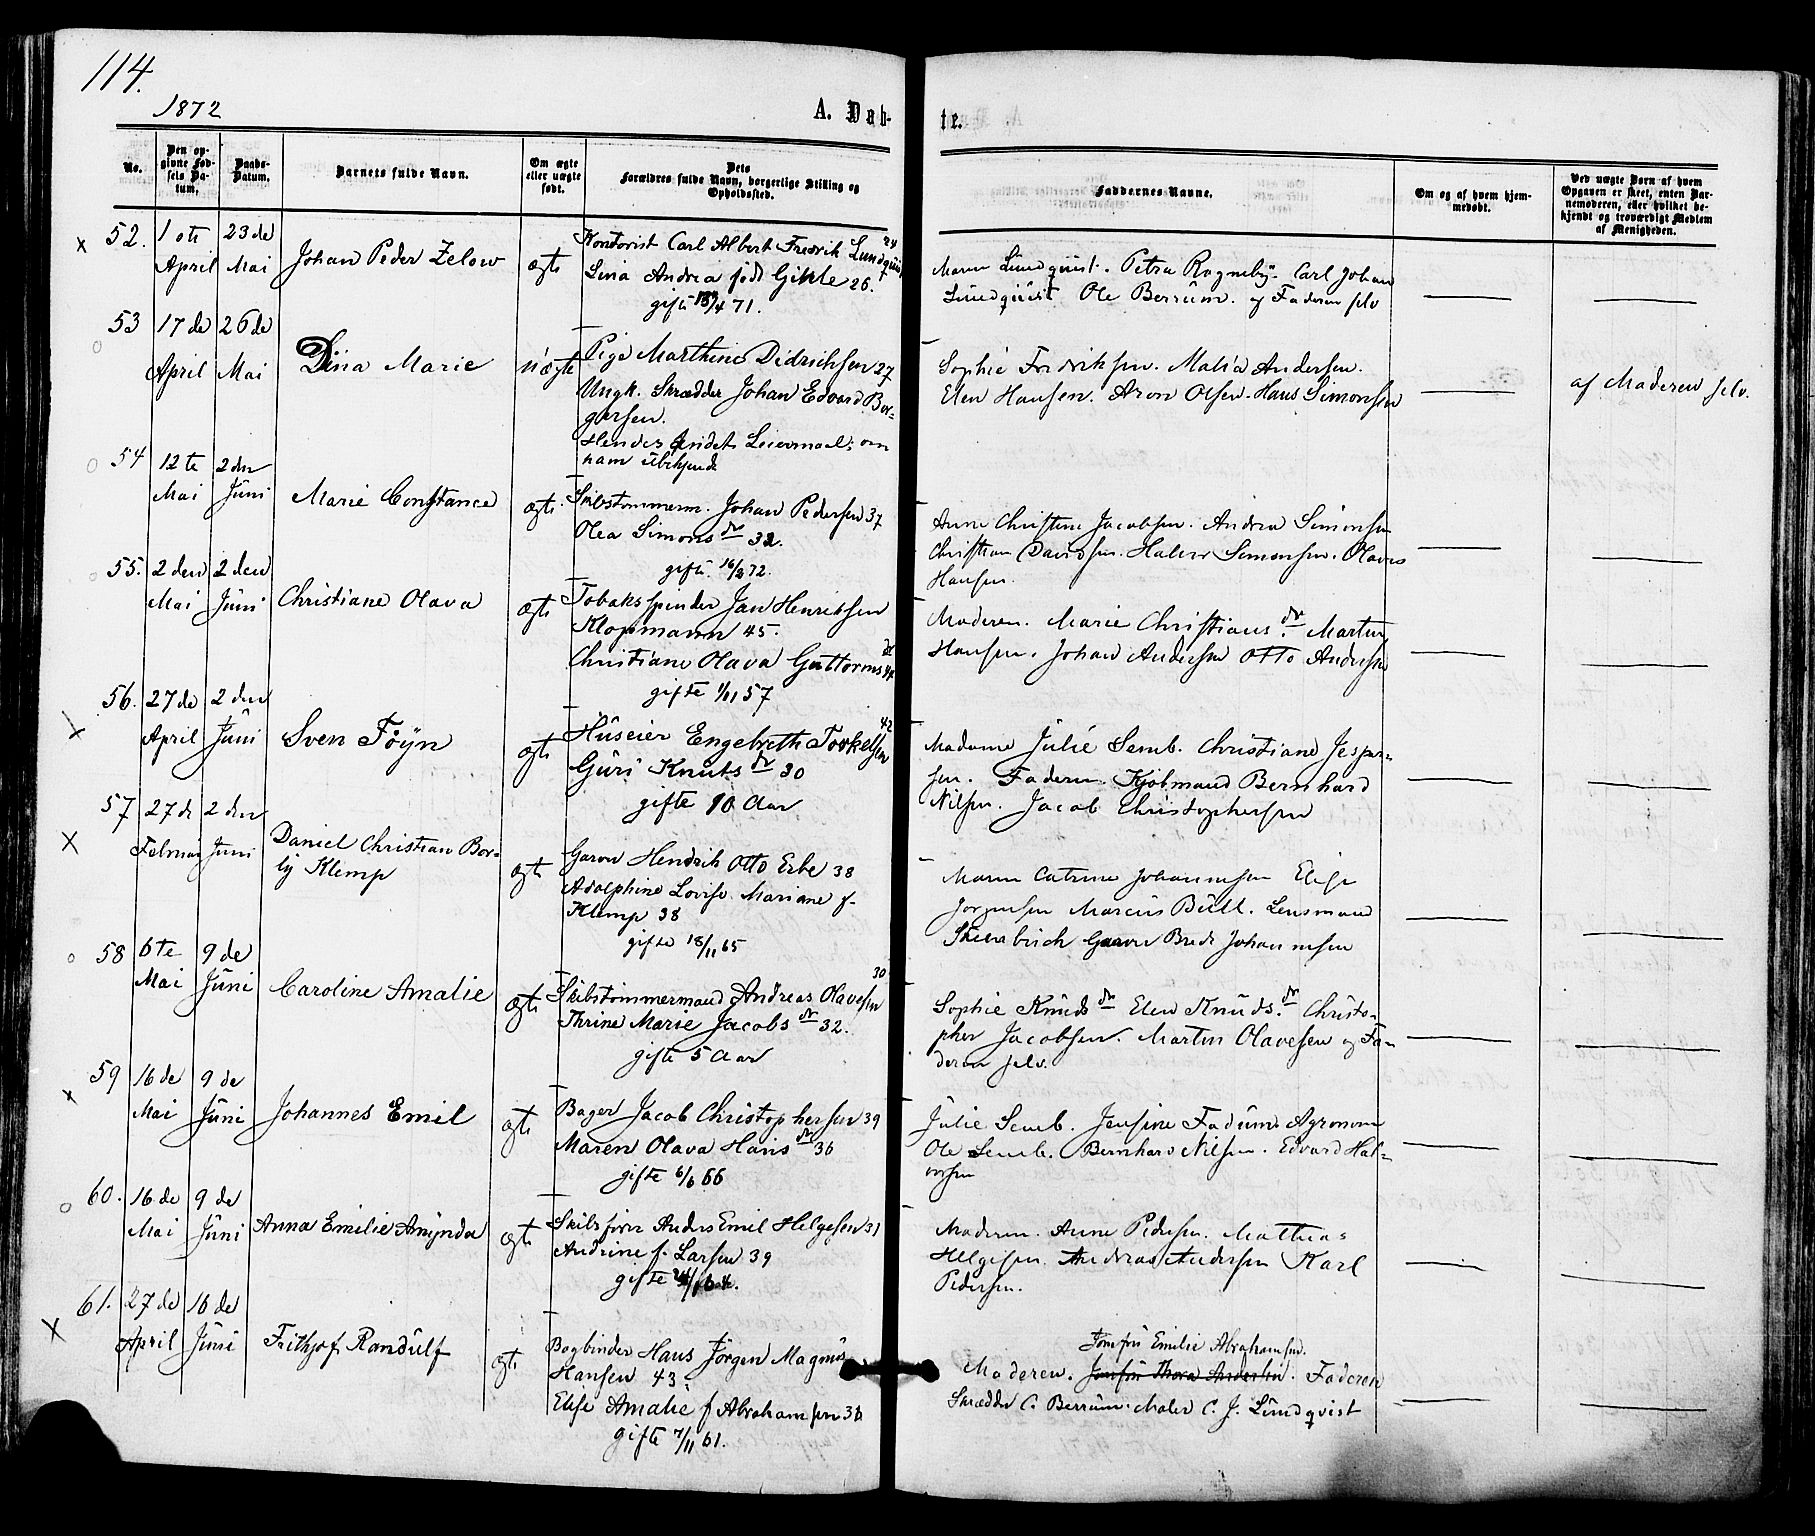 114.
1872
A. Døb-
te.
No.
Den op-
givne Fød-
sels Da-
tum.
Daabs-
Datum.
Barnets fulde Navn.
Om ægte
eller uægte
født.
Dets
Forældres fulde Navn, borgerlige Stilling og
Opholdssted.
Faddernes Navne.
Om og af hvem hjem-
medøbt.
Ved uægte Børn af hvem
Opgaven er skeet, enten Bar-
nemoderen, eller hvilket be-
kjendt og troværdigt Medlem
af Menigheden.
x 52. 1ste April 23de Mai Johan Peder Zelow ægte
Kontorist Carl Albert Fredrik Lundquist 24
Lina Andrea født Gihle 26.
gifte 4 71.
Maren Lundquist. Petra Rogneby. Carl Johan
Lundquist Ole Berrum. og Faderen selv
53 17de April 26de Mai Dina Marie uægte
Pige Marthine Didrichsen 27
Ungk. Skrædder Johan Edvard Bor-
gersen.
Hendes Leiermaal, om
ham übekjendt
Sophie Fredriksen. Malia Andersen.
Elen Hansen. Aron Olsen. Hans Simonsen
af Moderen selv.
54 12te Mai 2den Juni Marie Constance ægte
Skibstømmerm. Johan Pedersen 37
Olea Simonsdr 32.
gifte. 16/2 72.
Anne Christine Jacobsen. Andrea Simonsen
Christian Davidsen. Halvor Simonsen. Olaves
Hansen.
55. 2den Mai 2den Juni Christiane Olava ægte
Tobaksspinder Jan Henriksen
Klopmann 45.
Christiane Olava Guttormsdr
gifte 1/11 57
Moderen. Marie Christiansdr. Martin
Hansen. Johan Andersen Otto Andersen
56. 27de April 2den Juni Sven Foÿn ægte
Huseier Engebreth Torkelsen 42
Guri Knutsdr 30
gifte 10 Aar
Madame Julie Semb. Christiane Jesper-
sen. Faderen. Kjøbmand Bernhard
Nilsen. Jacob Christophersen
x 57 27de Februar 2den Juni Daniel Christian Bor-
lig Klemp ægte
Garver Hendrik Otto Erbe 38
Adolphine Lovise Mariane f.
Klemp 38
gifte 18/11 65
Maren Catrine Johannesen Elise
Jørgensen Marcus Bull. Lensmand
Garver Johannesen
58 6te Mai 9de Juni Caroline Amalie ægte
Skibstømmermand Andreas Olavesen 30
Thrine Marie Jacobsdr 32.
gifte 5 Aar
Sophie Knudsdr Elen Knudsdr. Christo-
pher Jacobsen. Martin Olavesen og Fa-
deren selv.
x 59 16de Mai 9de Juni Johannes Emil ægte
Bager Jacob Christophersen 39
Maren Olava Hansdr 36
gifte 6/6 66
Julie Semb. Jensine Fadum. Agronom
Ole Semb. Bernhard Nilsen. Edvard Hal-
vorsen
60. 16de Mai 9de Juni Anna Emilie Amynda ægte
Skibsfører Anders Emil Helgesen 31
Andrine f. Larsen 39
gifte
Moderen. Anne Pedersen. Mathias
Helgesen. Andreas Andersen Karl
Pedersen.
x 61. 27de April 16de Juni Frithjof Randulf ægte
Bogbinder Hans Jørgen Magnus
Hansen 43.
Elise Amalie f Abrahamsen 36
gifte 7/11 61.
Jomfru Emilie Abrahamsen.
Moderen. Jomfru Thora Andersen. Faderen
Skrædder C. Berrum. Maler C. J. Lundqvist